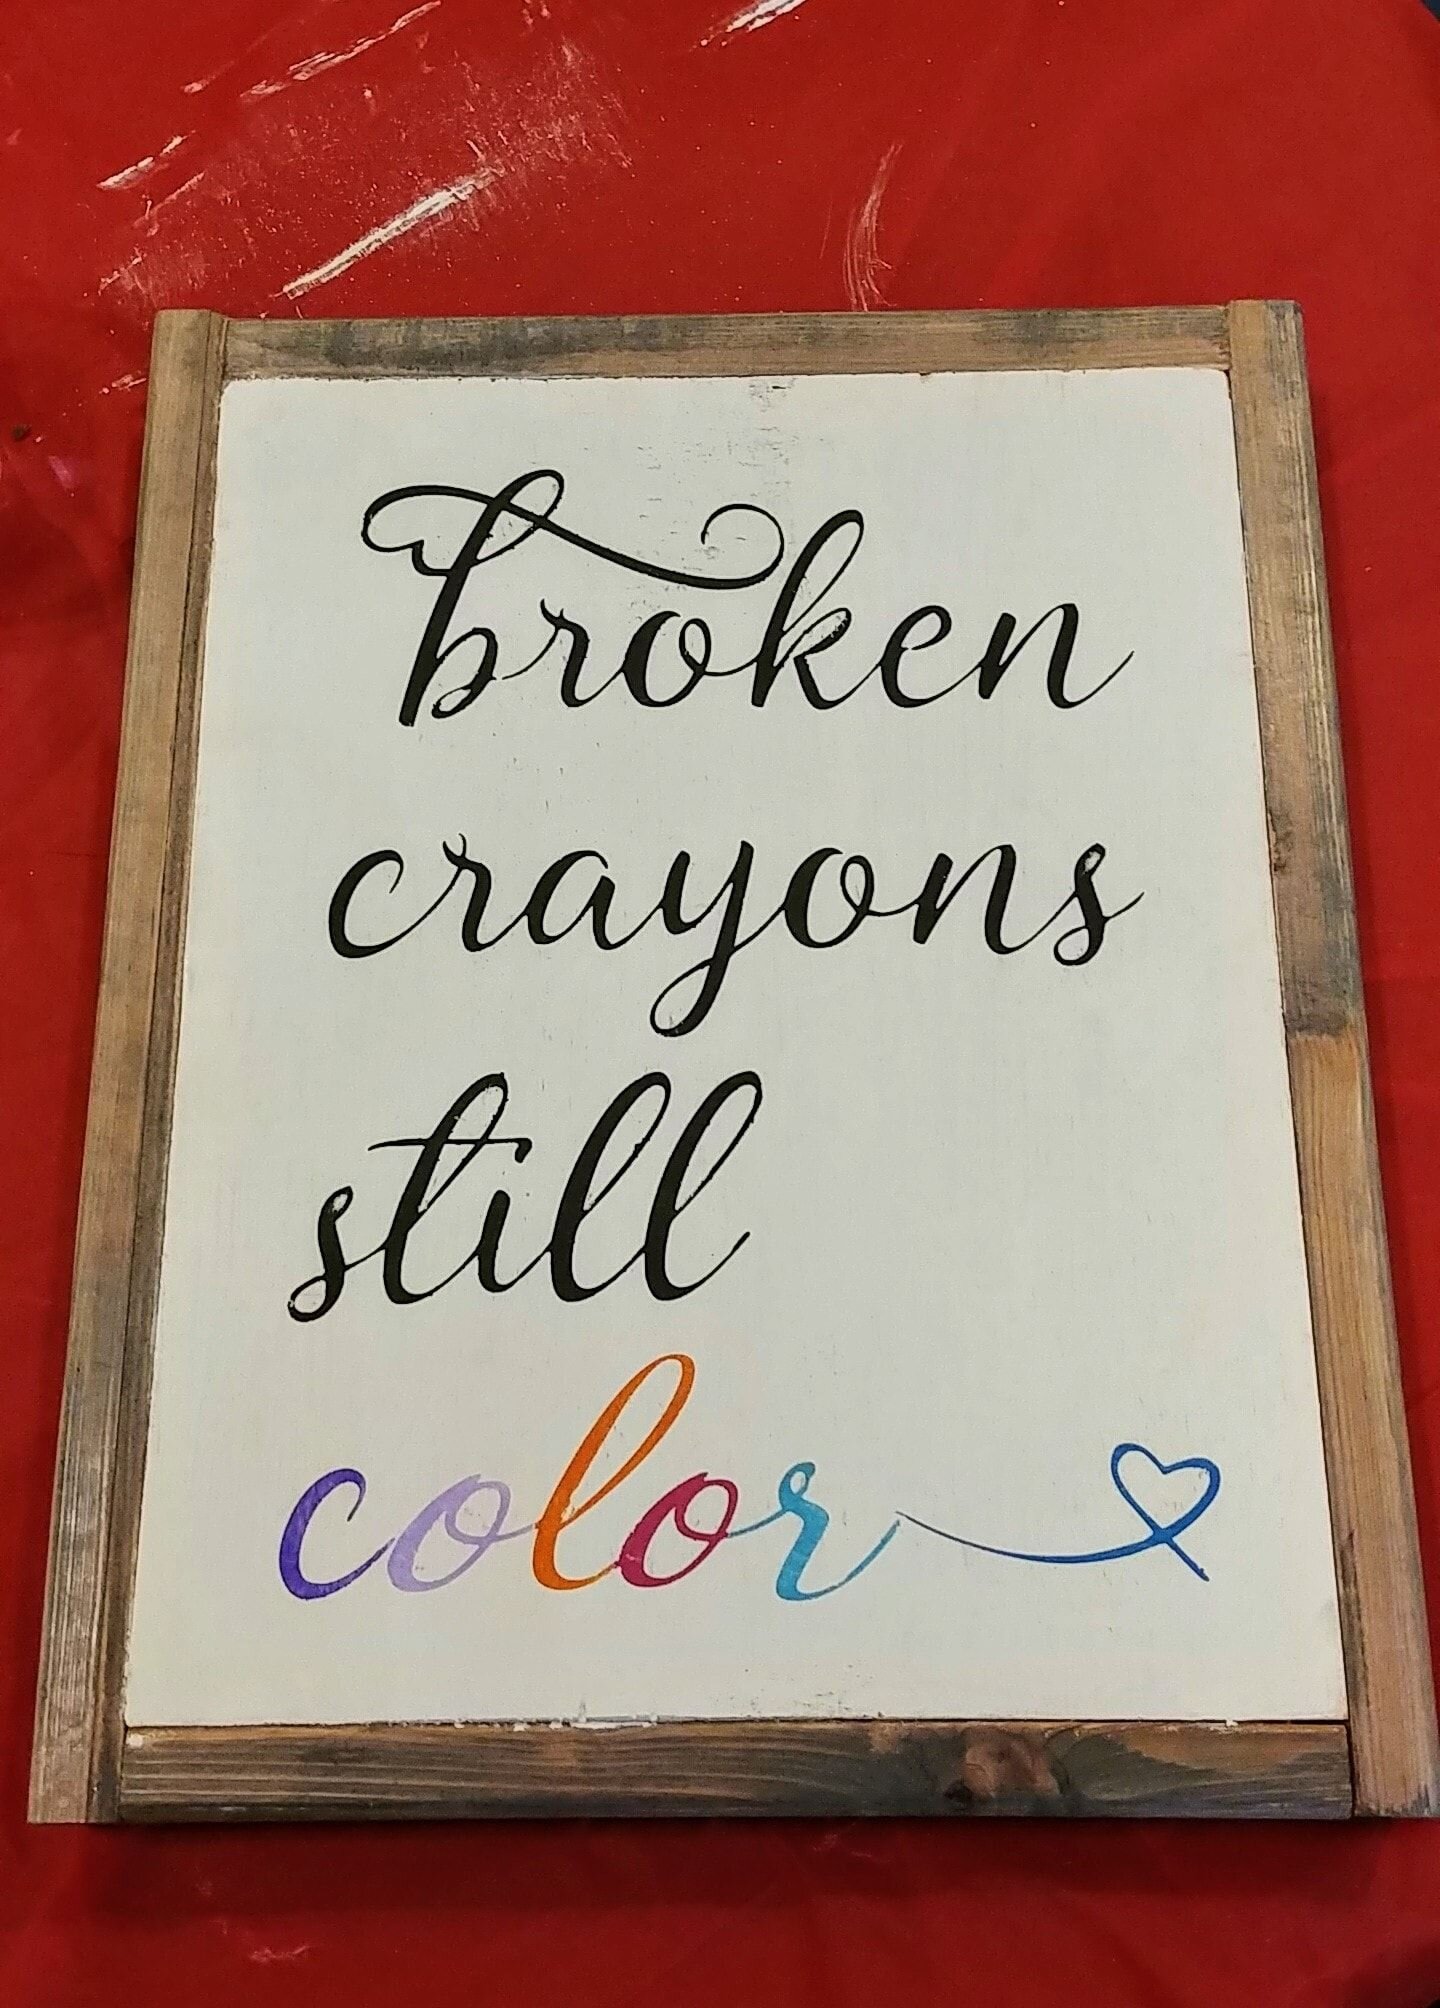 broken
crayons
still
color